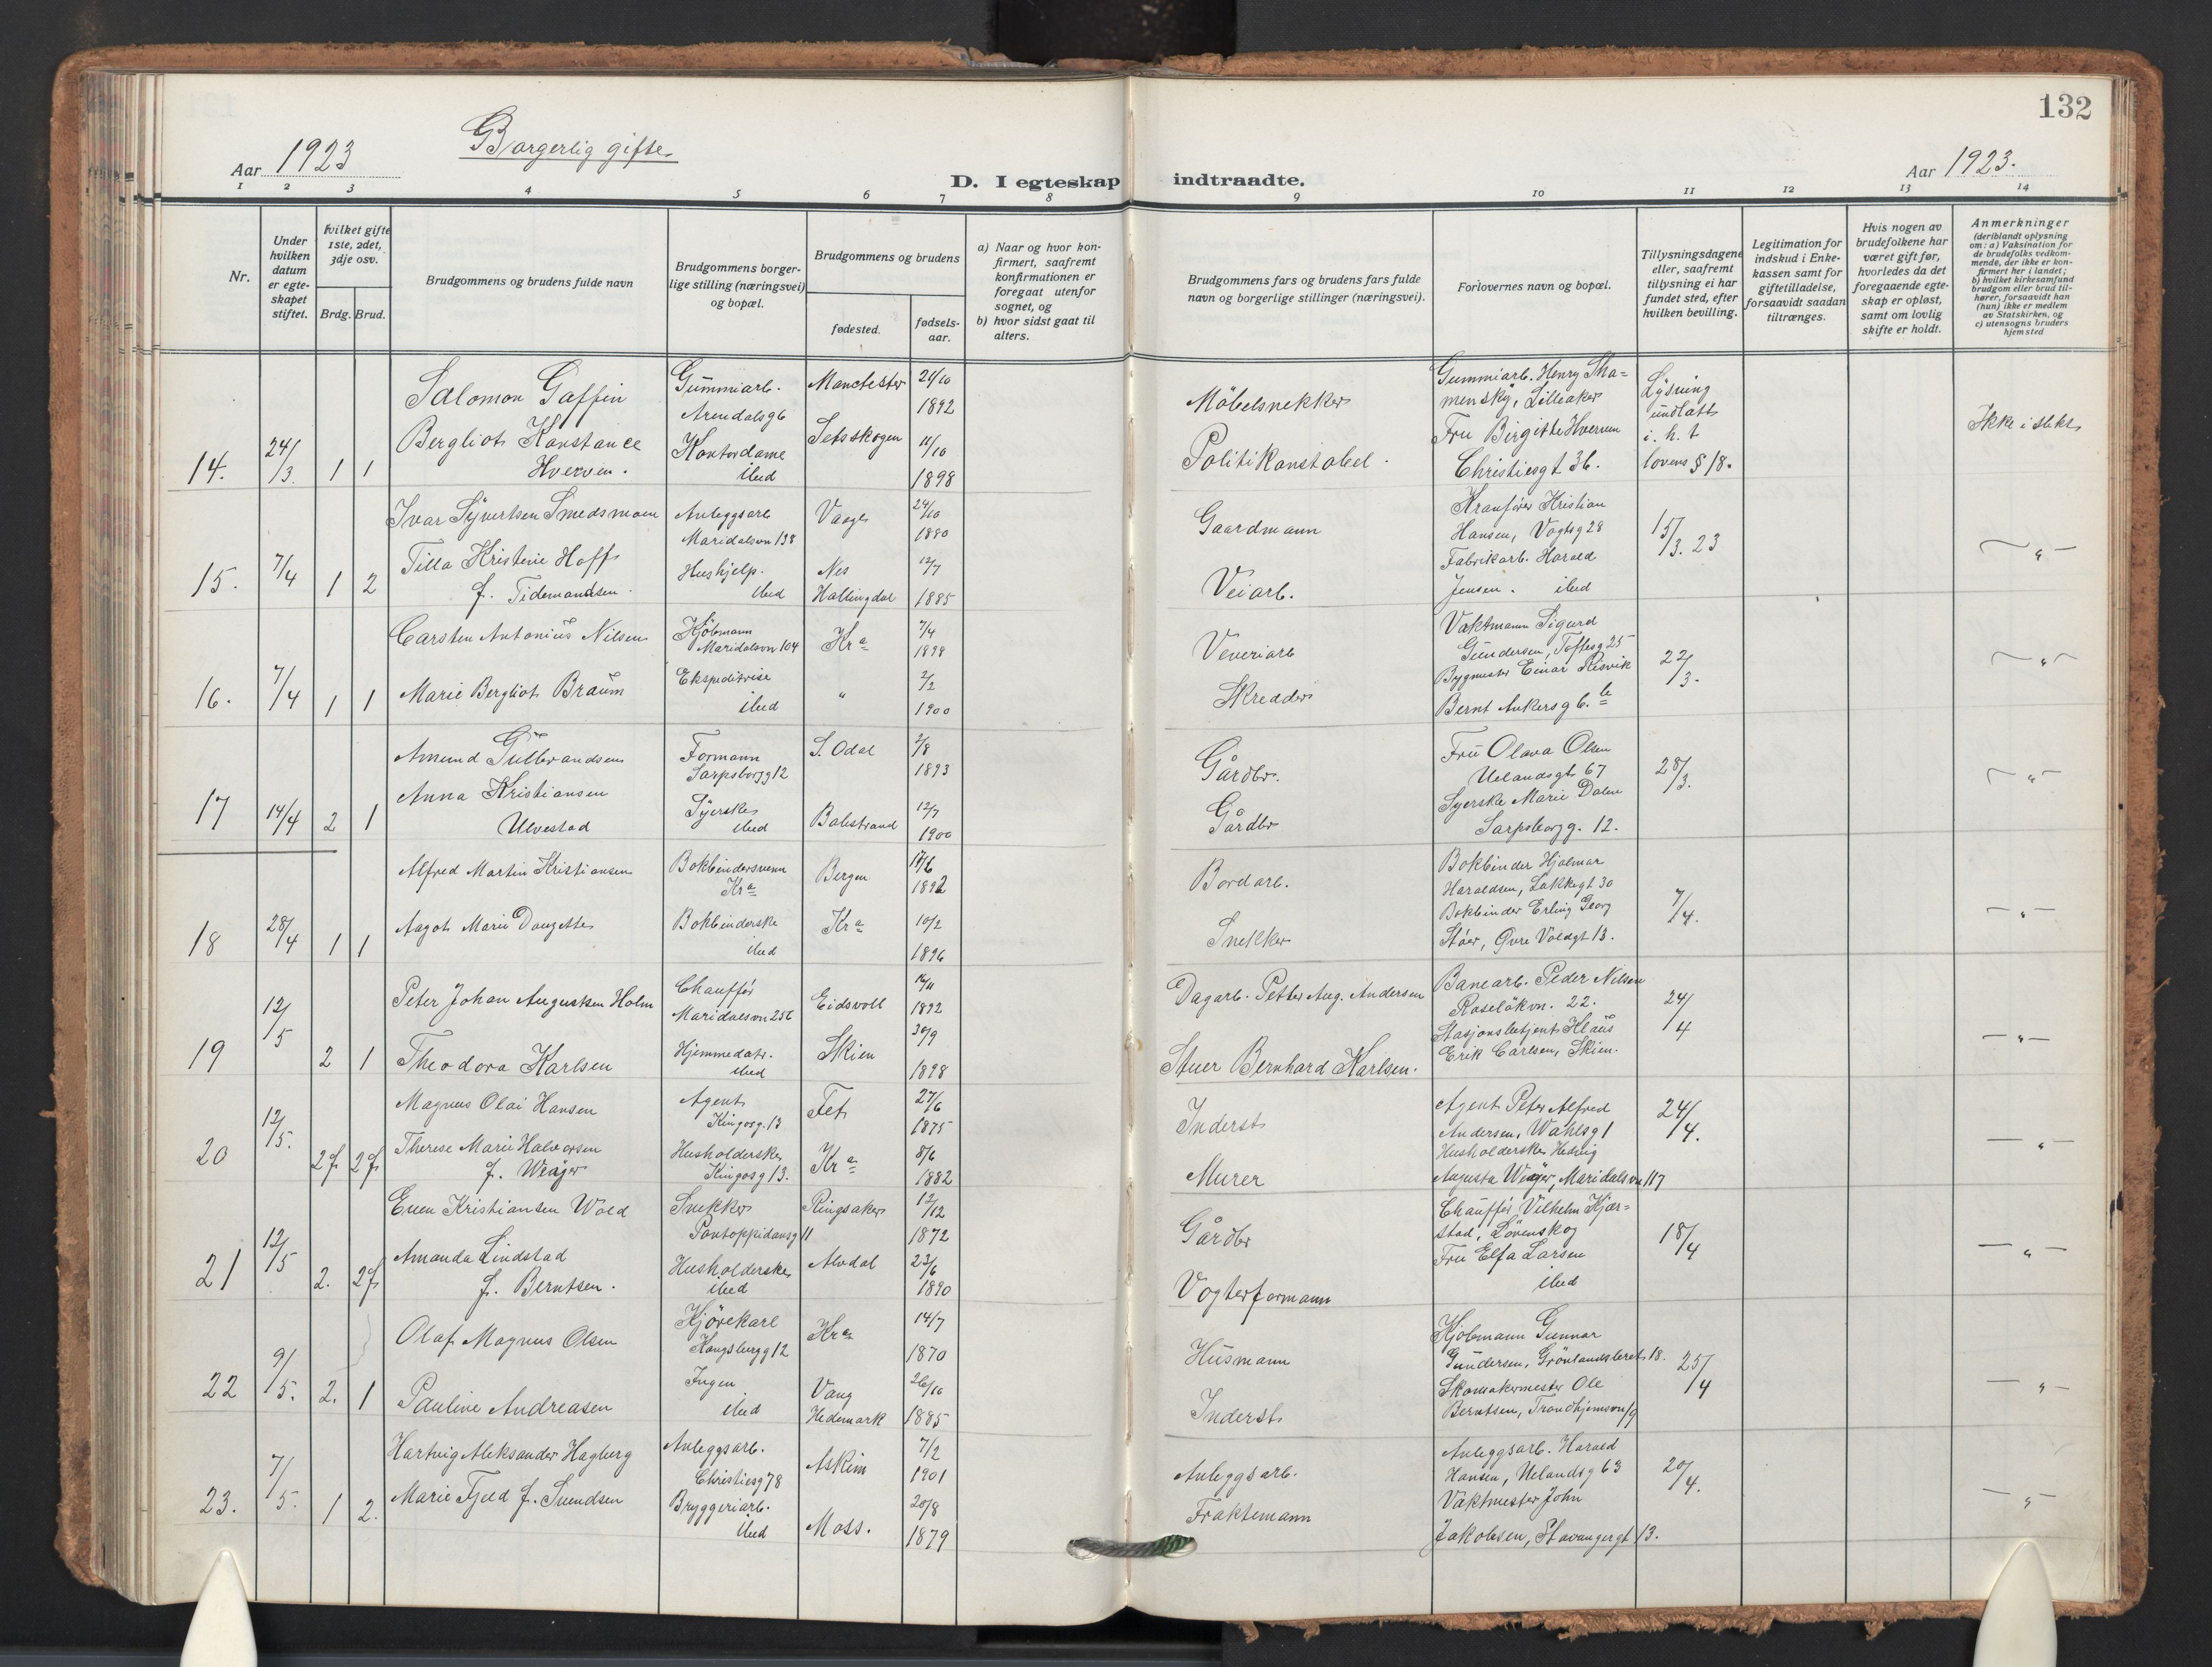 132
Borgerlig gifte.
Aar 1923
D. I egteskap indtraadte.
Aar 1923.
1 2 3 4 5 6 7 8 9 10 11 12 13 14
Nr.
Under hvilken datum er egteskapet stiftet.
Hvilket gifte 1ste, 2det, 3dje osv.
Brdg. Brud.
Brudgommens og brudens fulde navn
Brudgommens borgerlige stilling (næringsvei) og bopæl.
Brudgommens og brudens
fødested.
fødselsaar.
a) Naar og hvor konfirmert, saafremt konfirmationen er foregaat utenfor sognet, og
b) hvor sidst gaat til alters.
Brudgommens fars og brudens fars fulde navn og borgerlige stillinger (næringsvei).
Forlovernes navn og bopæl.
Tillysningsdagene eller, saafremt tillysning ei har fundet sted, efter hvilken bevilling.
Legitimation for indskud i Enkekassen samt for giftetilladelse, forsaavidt saadan tiltrænges.
Hvis nogen av brudefolkene har været gift før, hvorledes da det foregaaende egteskap er opløst, samt om lovlig skifte er holdt.
Anmerkninger (deriblandt oplysning om: a) Vaksination for de brudefolks vedkommende, der ikke er konfirmert her i landet; b) hvilket kirkesamfund brudgom eller brud tilhører, forsaavidt han (hun) ikke er medlem av Statskirken, og c) utensogns bruders hjemsted
14. 24/3. 1 1
Salomon Gaffin
Bergliot Konstance
Hverven.
Gummiarb.
Arendalsg 6
Kontordame
ibid
Manchester 21/10 1892
Setskogen 11/10 1898
Møbelsnekker
Politikonstabel.
Gummiarb. Henry Sha=
mensky, Lilleaker
Fru Birgitte Hverven
Christiesgt 36.
Lysning
undlatt
i. h. t
lovens § 18.
Ikke i slekt
15. 7/4 1 2
Ivar Syvertsen Smedsmoen
Tilla Kristine Hoff
f. Tidemandsen.
Anleggsarb
Maridalsvn 138
Hushjelp.
ibid
Vaage 24/10 1880
Nes
Hallingdal 12/7 1885
Gaardmann
Veiarb.
Kranfører Kristian
Hansen, Vogtsg 28
Fabrikarb. Harald
Jensen. ibid
15/3. 23
— " —
16. 7/4 1 1
Carsten Antonius Nilsen
Marie Bergliot Braum
Kjøbmann
Maridalsvn 104
Ekspeditrise
ibid
Kra 7/4 1898
" 2/2 1900
Veveriarb
Skredder
Vaktmann Sigurd
Gundersen, Toftesg 25
Bygmester Einar Risvik
Bernt Ankersg 6. b
22/3.
— " —
17 14/4 2 1
Amund Gulbrandsen
Anna Kristiansen
Ulvestad
Formann
Sarpsborgg 12
Syerske
ibid
S. Odal 2/8 1893
Balestrand 12/7 1900
Gårdbr.
Gårdbr
Fru Olava Olsen
Uelandsgt 67
Syerske Marie Dalen
Sarpsborgg. 12.
28/3.
— " —
18 28/4 1 1
Alfred Martin Kristiansen
Aagot Marie Dougette
Bokbindersvenn
Kra
Bokbinderske
ibid
Bergen 17/6 1892
Kra 10/2 1896
Bordarb.
Snekker
Bokbinder Hjalmar
Haraldsen, Lakkegt 30
Bokbinder Erling Georg
Støer, Øvre Voldgt 13.
7/4.
— " —
19 12/5 2 1
Peter Johan Augustsen Holm
Theodora Karlsen
Chauffør
Maridalsvn 256
Hjemmedatr.
ibid
Eidsvoll 16/11 1892
Skien 30/9 1898
Dagarb. Petter Aug. Andersen
Stuer Bernhard Karlsen.
Banearb. Peder Nilsen
Roseløkvn. 22.
Stasjonsbetjent Klaus
Erik Carlsen, Skien.
24/4
— " —
20 12/5. 2f 2f
Magnus Olai Hansen
Therese Marie Halvorsen
f. Weåger
Agent
Kingosg. 13
Husholderske
Kingosg 13.
Fet 27/6 1875
Kra 8/6 1882
Inderst
Murer
Agent Peter Alfred
Andersen, Wahlsg 1
Husholderske Hedvig
Augusta Weager, Maridalsvn 117
24/4.
— " —
21 12/5 2. 2f
Even Kristiansen Wold
Amanda Lindstad
f. Berntsen.
Snekker
Pontoppidansg 11
Husholderske
ibid
Ringsaker 12/12 1872
Alvdal 23/6 1890
Gårdbr
Vogterformann
Chauffør Vilhelm Kjær=
stad, Lørenskog
Fru Elfa Larsen
ibid
18/4
— " —
22 9/5. 2. 1
Olaf Magnus Olsen
Pauline Andreasen
Kjørekarl
Kongsbergg 12
Ingen
ibid
Kra 14/7 1870
Vang
Hedemark 26/10 1885
Husmann
Inderst
Kjøbmann Gunnar
Gundersen, Grønlandsleret 18.
Skomakermester Ole
Berntsen, Trondhjemsvn 19
25/4
— " —
23. 7/5. 1 2.
Hartvig Aleksander Hagberg
Marie Fjeld f. Svendsen
Anleggsarb.
Christiesg 78
Bryggeriarb.
ibid
Askim 7/2 1901
Moss. 20/8 1879
Anleggsarb.
Fraktemann
Anleggsarb. Harald
Hansen, Uelandsg 63
Vaktmester John
Jakobsen, Stavangergt 13.
20/4.
— " —